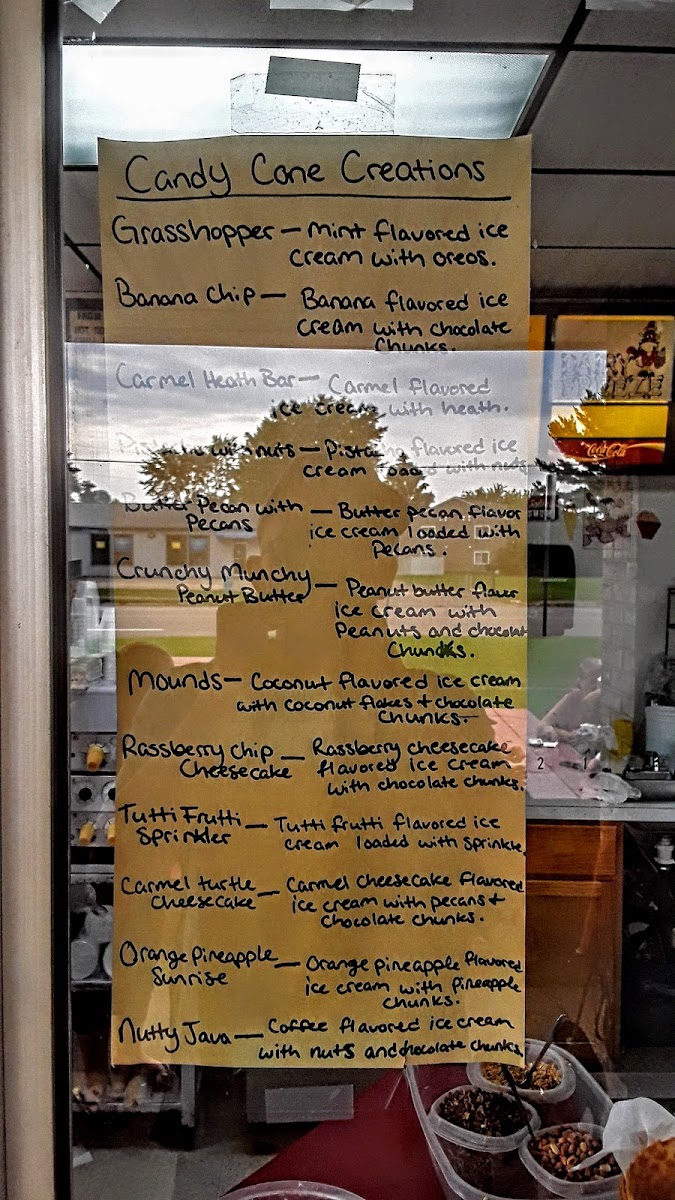 Candy Cone Creations
Grasshopper - mint flavored ice
cream with oreos.
Banana Chip - Banana flavored ice
cream with chocolate
Chunks.
Carmel Heath Bar - Carmel flavored
ice cream with heath.
with nuts - flavored ice
cream with nuts
Butter Pecan with - Butter pecan flavor
Pecans ice cream loaded with
Pecans.
Crunchy Munchy - Peanut butter flavor
Peanut Butter ice cream with
Peanuts and chocolat
Chunks.
Mounds - Coconut flavored ice cream
with coconut flakes + chocolate
Chunks
Rassberry Chip - Rassberry cheesecake
Cheesecake flavored ice cream
with chocolate chunks.
Tutti Frutti - Tutti frutti flavored ice
Sprinkler cream loaded with sprinkle
Carmel turtle - Carmel cheesecake flavored
Cheesecake ice cream with pecans +
chocolate chunks.
Orange Pineapple - Orange pineapple flavored
Sunrise ice cream with Pineapple
chunks.
Nutty Java - Coffee flavored ice cream
with nuts and chocolate chunks.
Coca-Cola
2 1